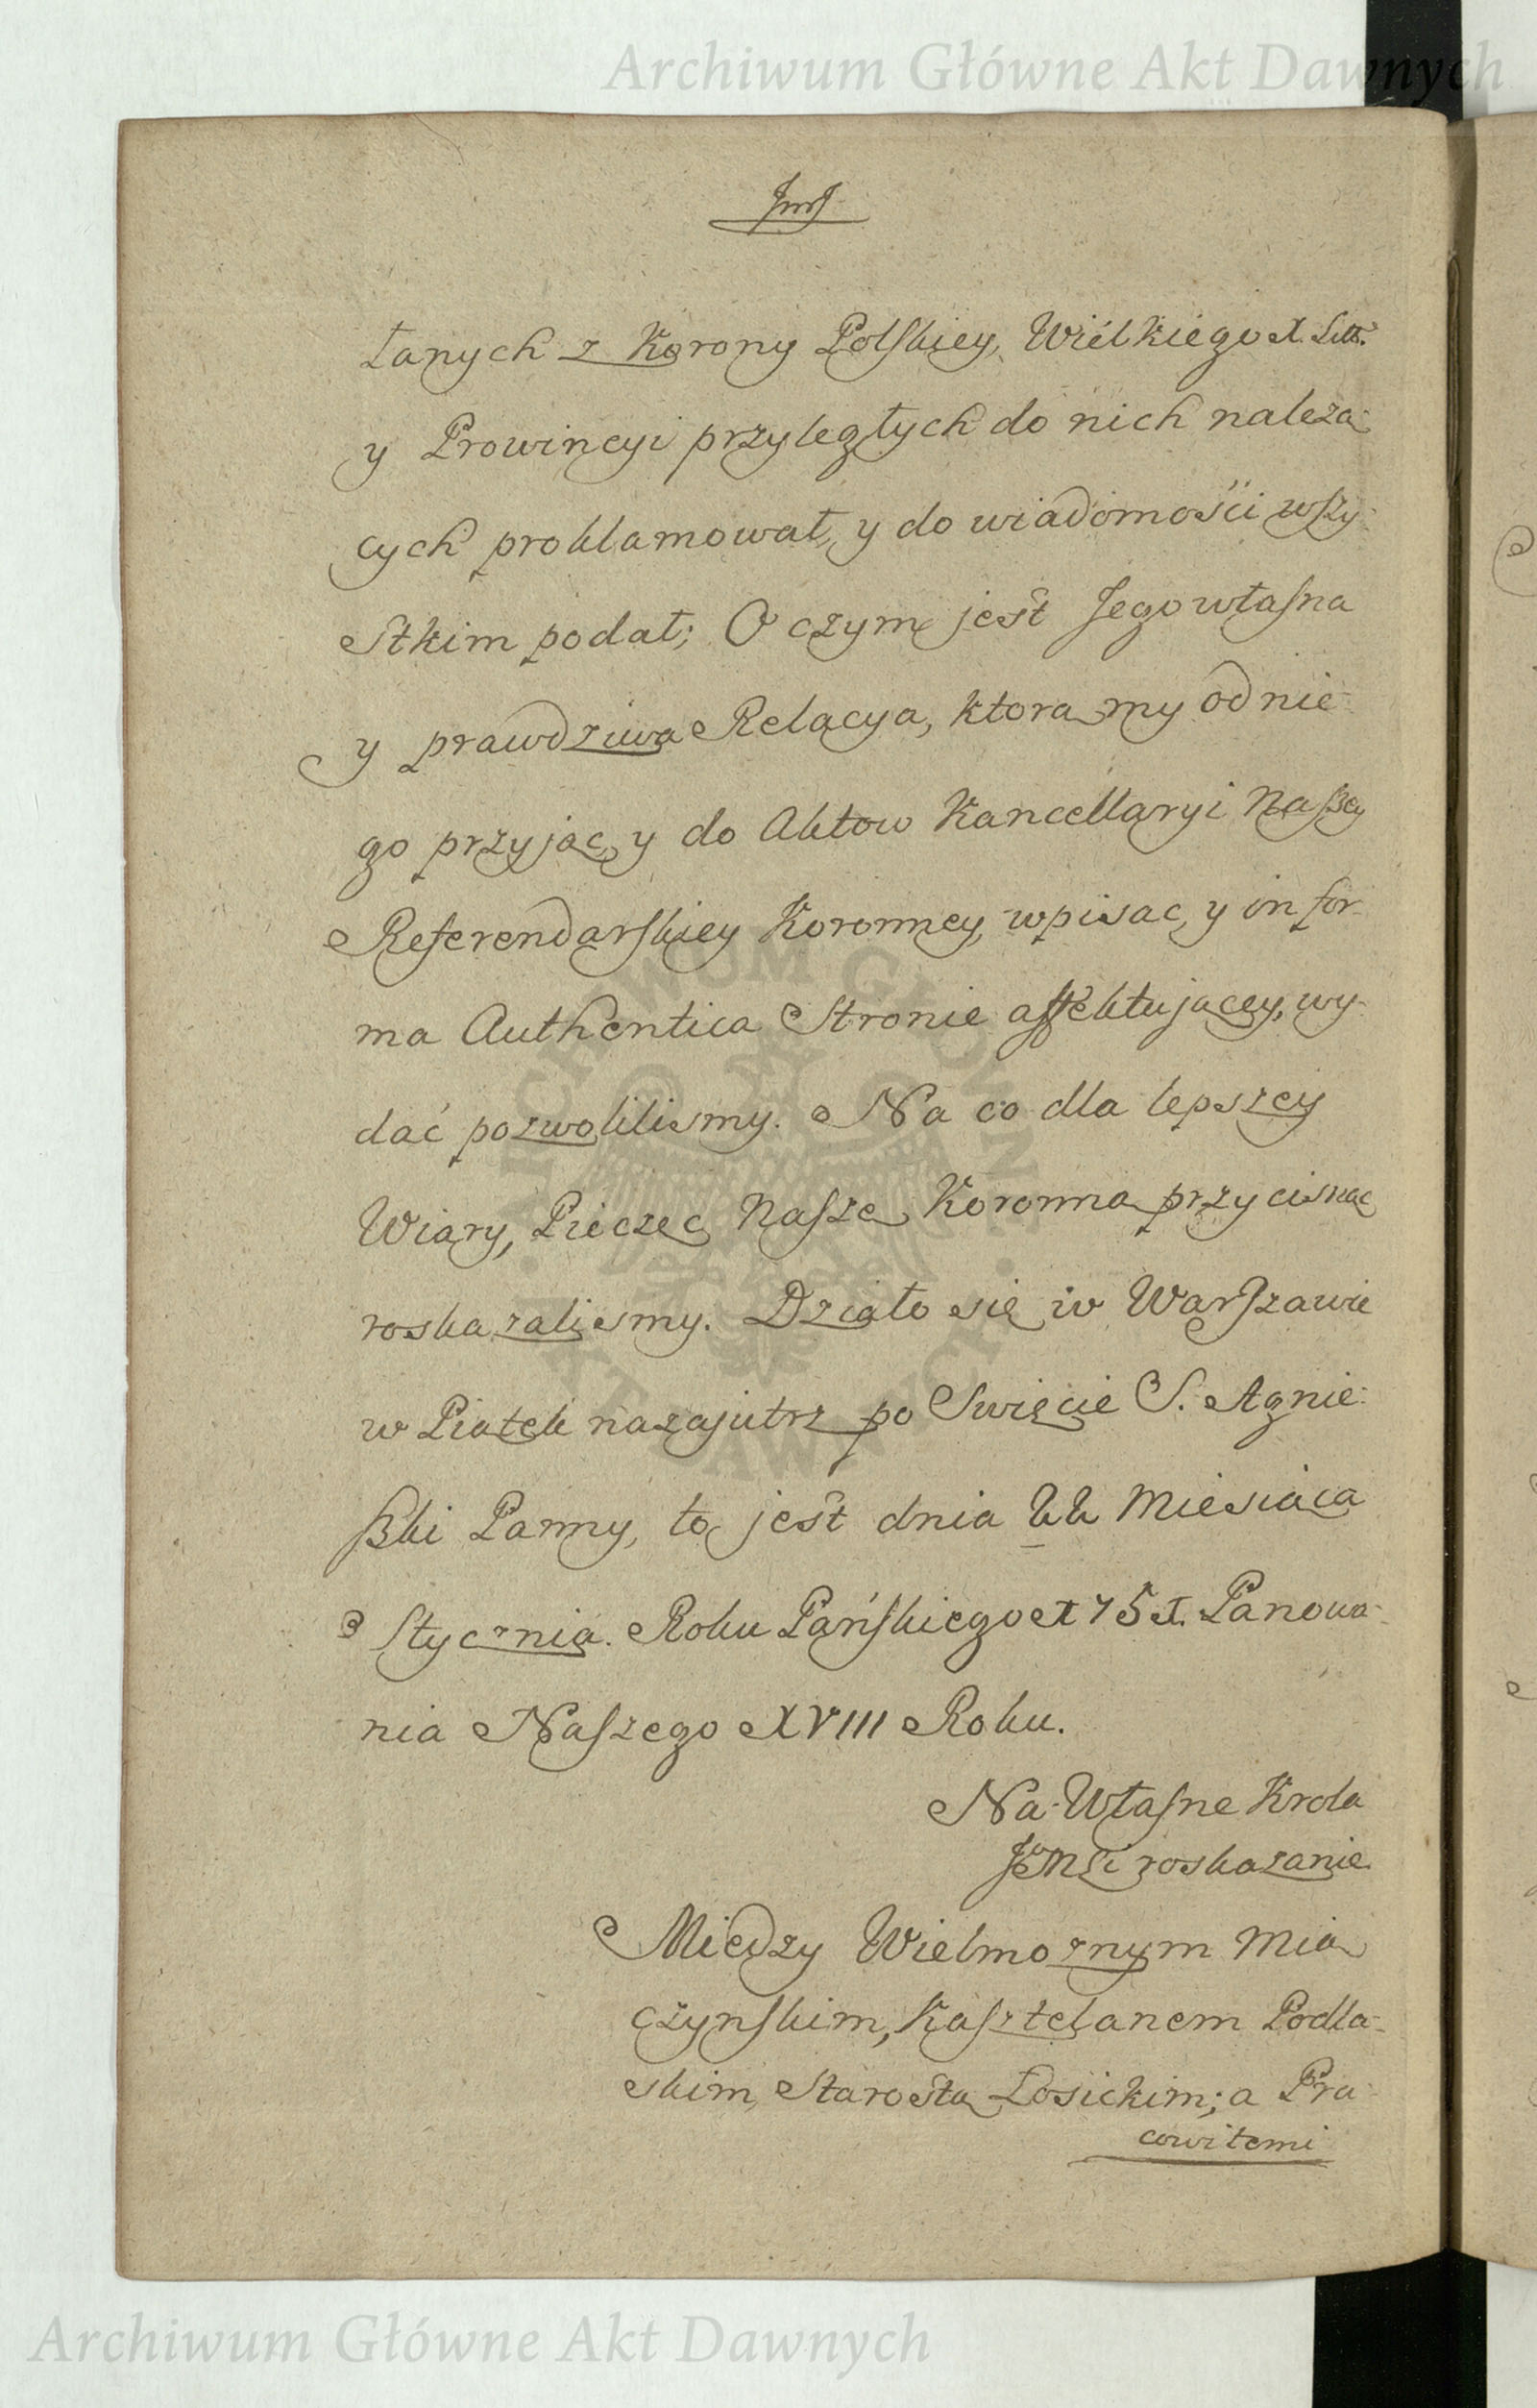 Archiwum Główne Akt Dawnych
JmJ
łanych z Korony Polskiey, Wielkiego X. Litt.
y Prowincyi przyległych do nich należą-
cych proklamował, y do wiadomości wszy-
stkim podał; O czym jest Jego własna
y prawdziwa Relacya, ktorą my od nie-
go przyjąć, y do Aktow Kancellaryi Naszey
Referendarskiey Koronney, wpisac, y in for-
ma Authentica Stronie affektującey, wy-
dać pozwolilismy. Na co dla lepszey
Wiary, Pieczęć Naszę Koronną przycisnąć
roskazalismy. Działo się w Warszawie
w Piątek nazajutrz po Swięcie S. Agnie-
szki Panny, to jest dnia 22 Miesiąca
Stycznia. Roku Pańskiego 1751. Panowa-
nia Naszego XVIII Roku.
Na Własne Krola
JEMSCi roskazanie
Między Wielmoznym Mią
czynskim, Kasztelanem Podla-
skim, Starostą Łosickim; a Pra-
cowitemi
ARCHIWUM GŁÓWNE AKT DAWNYCH
Archiwum Główne Akt Dawnych